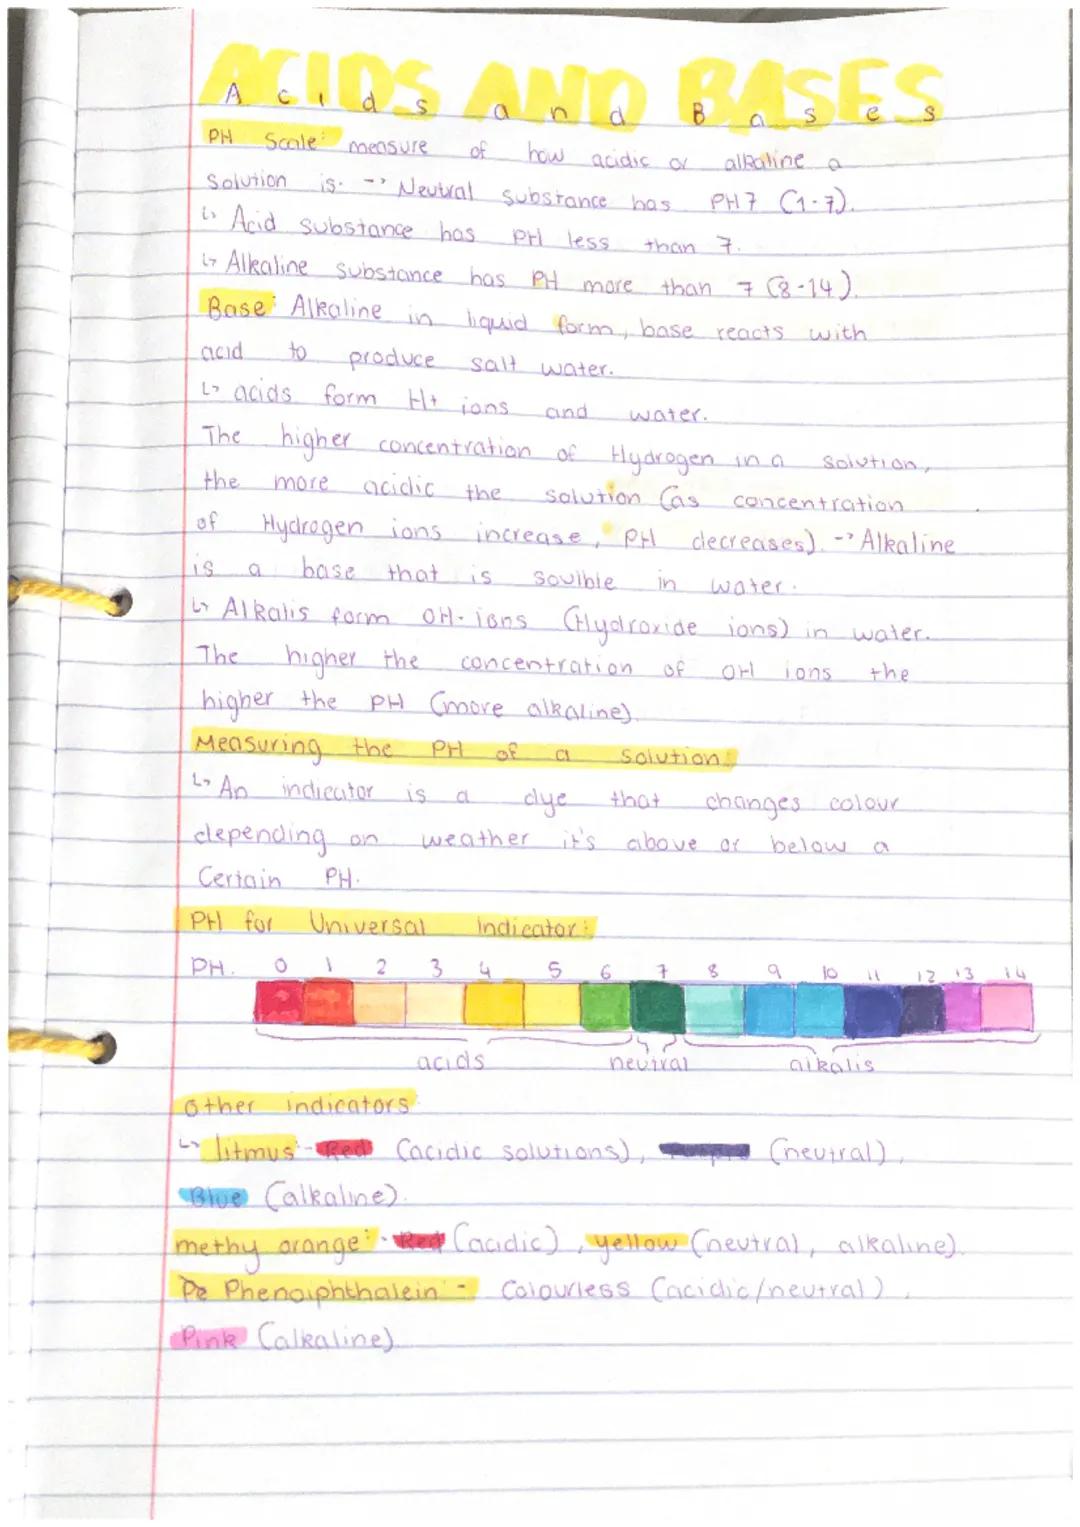 ACIDS AND BASES
Acids and Bases
PH Scale: measure of how acidic or alkaline a
solution is. -> Neutral substance has PH7 (1-7).
↳ Acid substance has PH less than 7.
↳ Alkaline substance has PH more than 7 (8-14).
Base: Alkaline in liquid form, base reacts with
acid to produce salt water.
↳ acids form H+ ions and water.
The higher concentration of Hydrogen in a solution,
the more acidic the solution (as concentration
of Hydrogen ions increase, PH decreases). -> Alkaline
is a base that is soulble in water.
↳ Alkalis form OH- ions (Hydroxide ions) in water.
The higher the concentration of OH ions the
higher the PH (more alkaline).
Measuring the PH of a solution:
↳ An indicator is a dye that changes colour
depending on weather it's above or below a
Certain PH.
PH for Universal Indicator:
PH. 0 1 2 3 4 5 6 7 8 9 10 11 12 13 14
acids neutral alkalis
Other indicators:
↳ litmus - Red (acidic solutions), Purple (neutral),
Blue (alkaline).
methy orange: - Red (acidic), yellow (neutral, alkaline).
Phenolphthalein - Colourless (acidic/neutral),
Pink (alkaline).